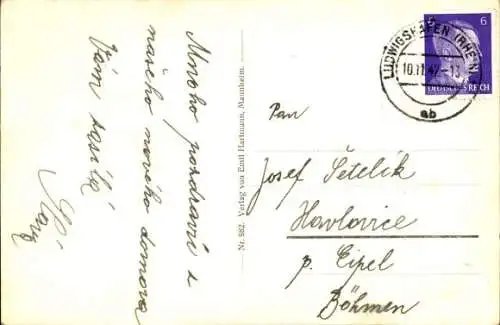 Mnoho pozdravů z
našeho nového domova
Vám zasílá
Nr. 982. Verlag von Emil Hartmann, Mannheim.
LUDWIGSHAFEN (RHEIN)
10.11.42
ab
6
DEUTSCHES REICH
Pan
Josef Šetelík
Havlovice
p. Eipel
Böhmen